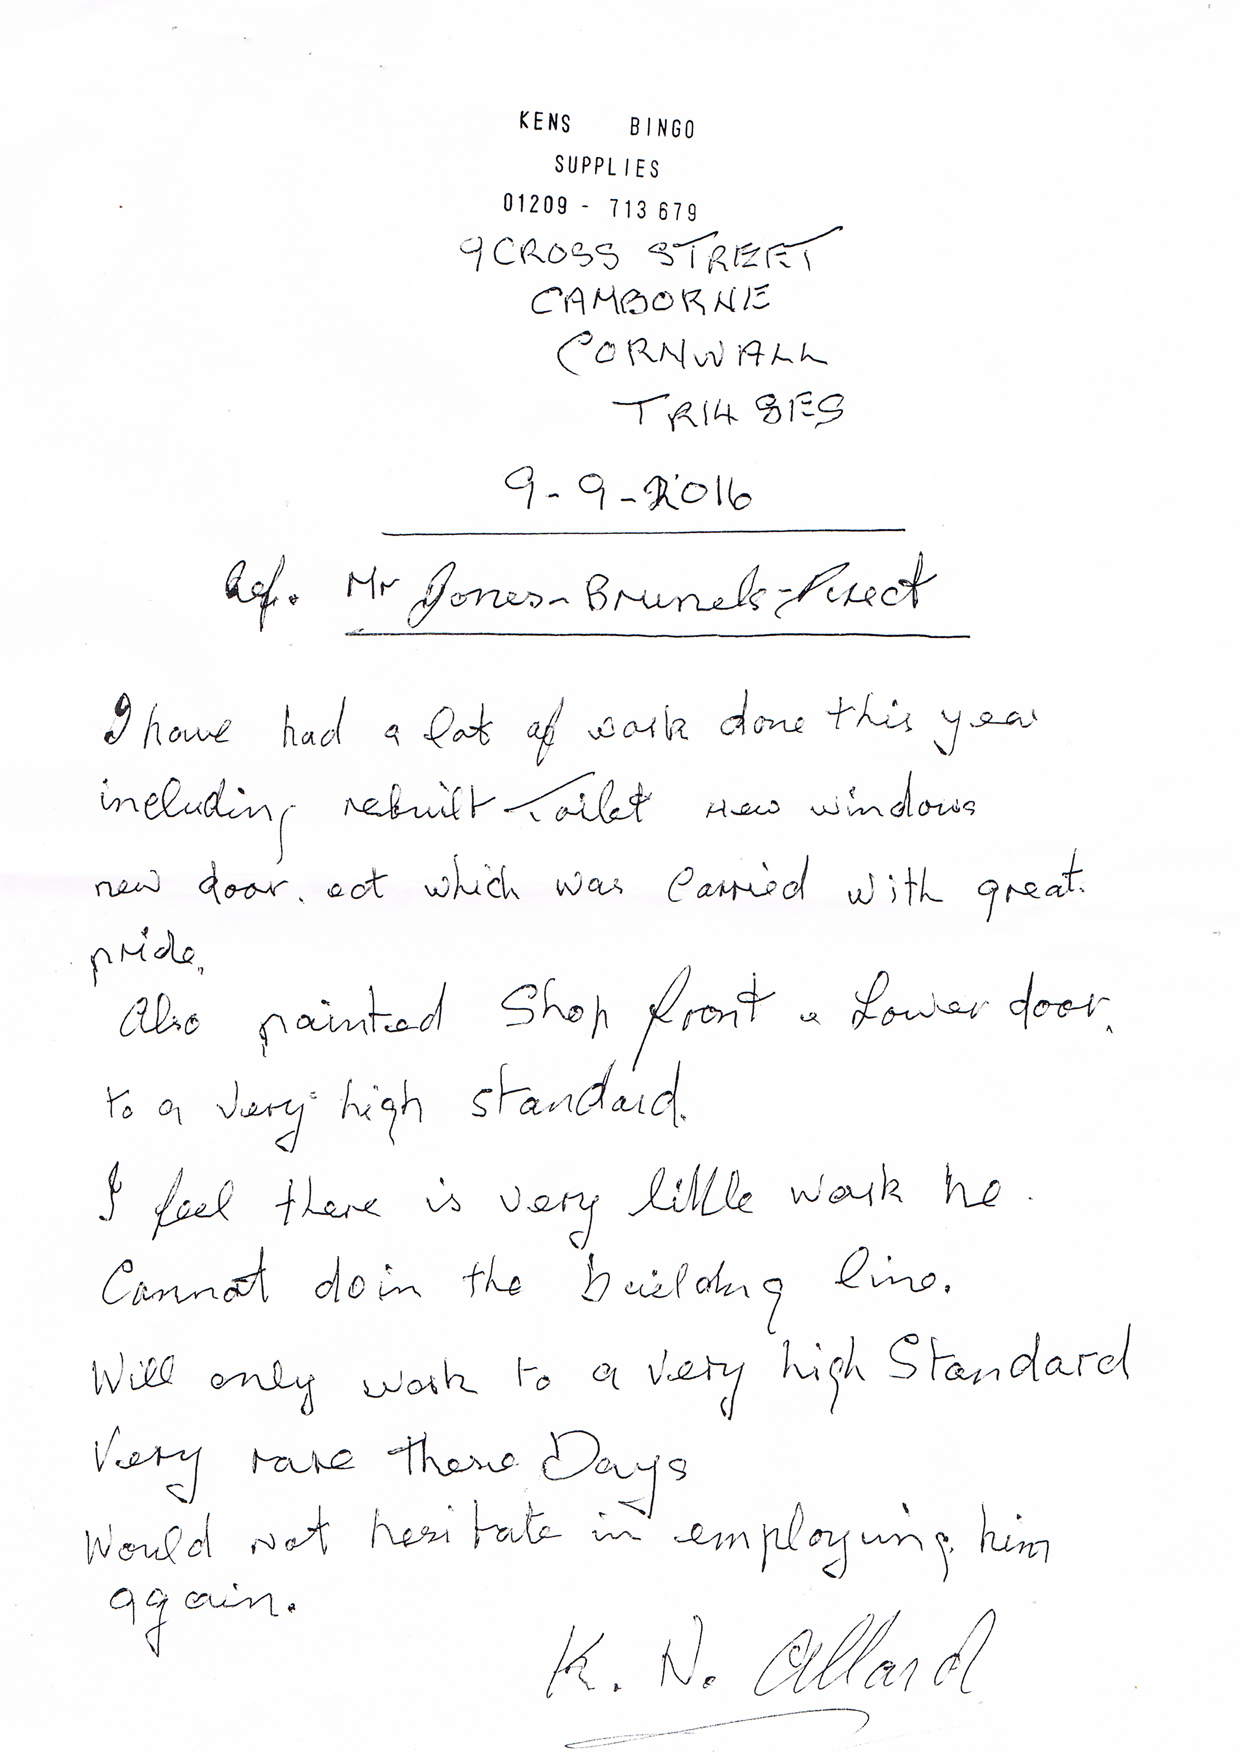 KENS BINGO
SUPPLIES
01209 - 713 679
9 CROSS STREET
CAMBORNE
CORNWALL
TR14 8ES
9-9-2016
Ref. Mr Jones-Brunels-Direct
I have had a lot of work done this year
including rebuilt Toilet new windows
new door. ect which was Carried with great
pride,
Also painted Shop front & Lower door,
to a very high standard.
I feel there is very little work he
Cannot do in the building line.
Will only work to a very high Standard
Very rare these Days
Would not hesitate in employing him
again.
K. N. Allard